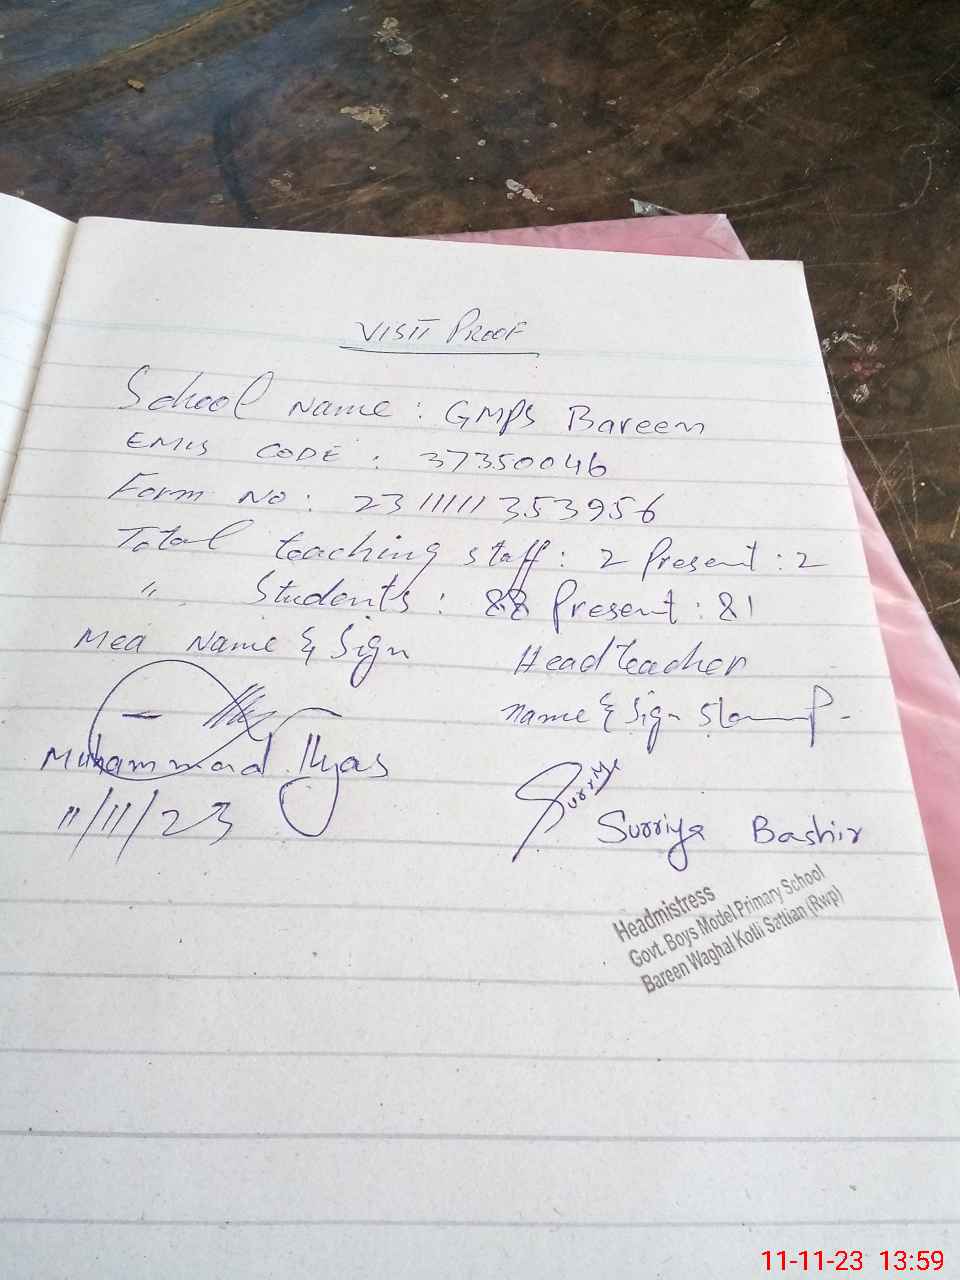 VISIT PROOF
School Name : GMPS Bareen
EMIS CODE : 37350046
Form No : 231111353956
Total teaching staff : 2 Present : 2
" Students : 88 Present : 81
Mea Name & Sign
Headteacher
name & Sign Stamp.
Muhammad Ilyas
11/11/23
Surriya
Surriya Bashir
Headmistress
Govt. Boys Model Primary School
Bareen Waghal Kotli Sattian (Rwp)
11-11-23 13:59